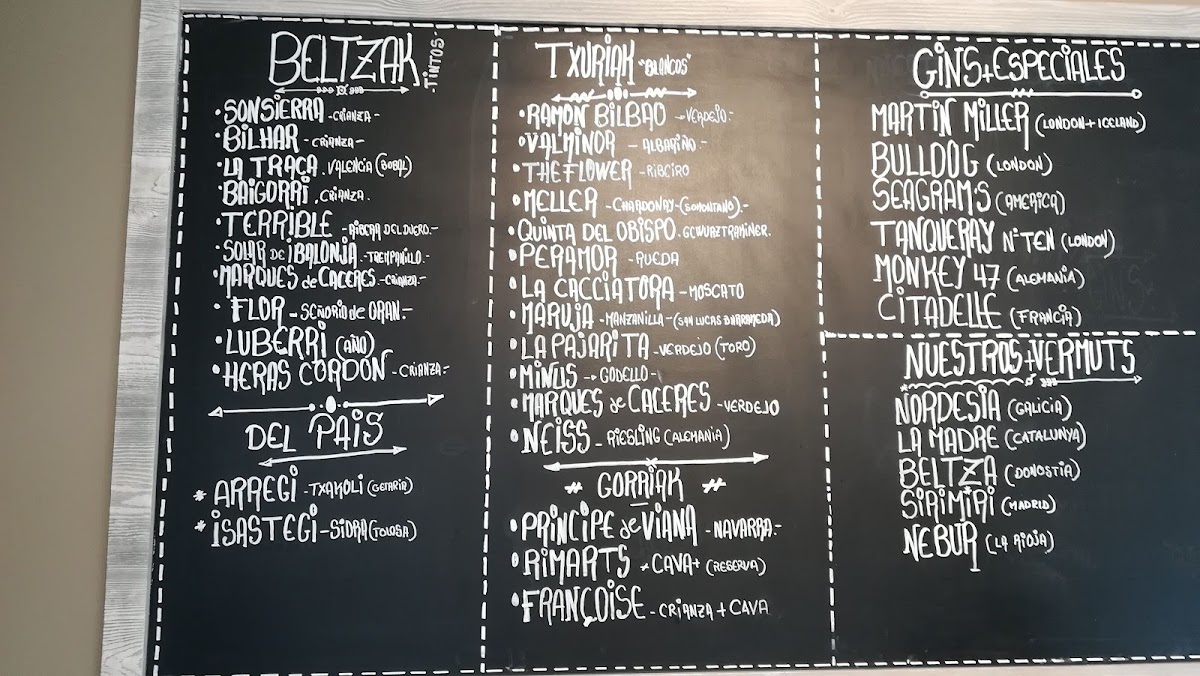 BELTZAK
TINTOS-
•SONSIERRA -CRIANZA-
•BILHAR -CRIANZA-
•LA TRACA. VALENCIA (BOBAL)
•BAIGORRI. CRIANZA.
•TERRIBLE -RIBERA DEL DUERO.-
•SOLAR DE iBALONJA. -TREMPANILLO.-
•MARQUES de CACERES.-CRIANZA.-
•FLOR - SEÑORIO de ORAN-
•LUBERRI (AÑO)
•HERAS CORDON -CRIANZA-
DEL PAIS
* ARREGI -TXAKOLI (GETARIA)
* iSASTEGI -SIDRA (TOLOSA)
TXURIAK "BLANCOS"
•RAMON BILBAO -VERDEJO-
•VALMINOR - ALBARIÑO-
•THE FLOWER -RIBEIRO
•MELLER -CHARDONAY-(SOMONTANO).-
•QUINTA DEL OBISPO. GEWURZTRAMINER.
•PERAMOR -RUEDA
•LA CACCIATORA -MOSCATO
•MARUJA -MANZANILLA-(SAN LUCAS BARRAMEDA)
•LA PAJARITA -VERDEJO (TORO)
•MINUS -GODELLO-
•MARQUES de CACERES -VERDEJO
•NEISS - RIESLING (ALEMANIA)
GORRIAK
•PRINCIPE de VIANA -NAVARRA-
•RIMARTS CAVA+ (RESERVA)
•FRANÇOISE - CRIANZA + CAVA
GINS+ESPECIALES
MARTIN MILLER (LONDON+ICELAND)
BULLDOG (LONDON)
SEAGRAM'S (AMERICA)
TANQUERAY N· TEN (LONDON)
MONKEY 47 (ALEMANIA)
CITADELLE (FRANCIA)
NUESTROS+VERMUTS
NORDESIA (GALICIA)
LA MADRE (CATALUNYA)
BELTZA (DONOSTIA)
SIRIMIRI (MADRID)
NEBUR (LA RIOJA)